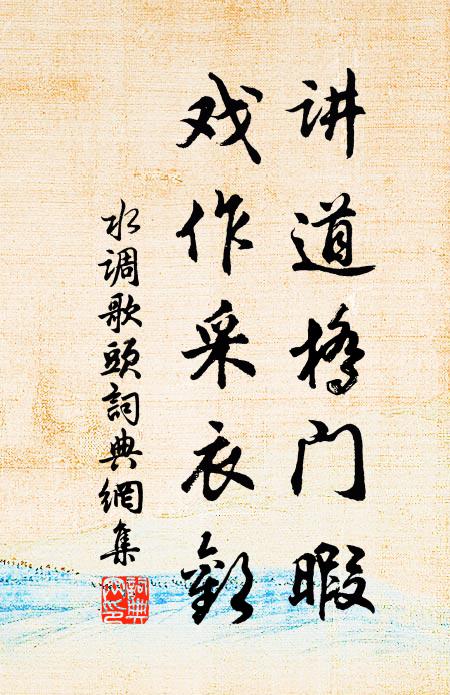 讲道桥门暇
戏作采衣歡
水调歌頭詞典網集